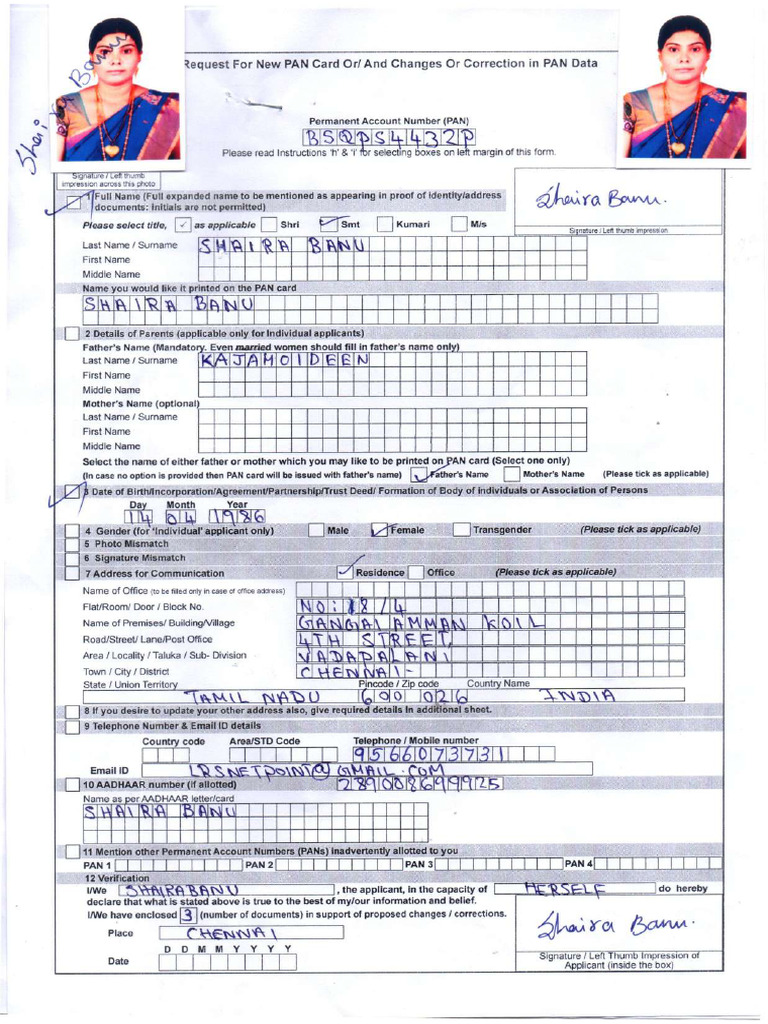 Request For New PAN Card Or/ And Changes Or Correction in PAN Data
Shaira Banu
Permanent Account Number (PAN)
BSQPS4432P
Please read Instructions 'h' & 'i' for selecting boxes on left margin of this form.
Signature / Left thumb
impression across this photo
1 Full Name (Full expanded name to be mentioned as appearing in proof of identity/address
documents: initials are not permitted)
Shaira Banu.
Please select title, ✓ as applicable Shri Smt Kumari M/s
Signature / Left thumb impression
Last Name / Surname SHAIRA BANU
First Name
Middle Name
Name you would like it printed on the PAN card
SHAIRA BANU
2 Details of Parents (applicable only for Individual applicants)
Father's Name (Mandatory. Even married women should fill in father's name only)
Last Name / Surname KAJAMOIDEEN
First Name
Middle Name
Mother's Name (optional)
Last Name / Surname
First Name
Middle Name
Select the name of either father or mother which you may like to be printed on PAN card (Select one only)
(In case no option is provided then PAN card will be issued with father's name) Father's Name Mother's Name (Please tick as applicable)
3 Date of Birth/Incorporation/Agreement/Partnership/Trust Deed/ Formation of Body of individuals or Association of Persons
Day Month Year
14 04 1986
4 Gender (for 'Individual' applicant only) Male Female Transgender (Please tick as applicable)
5 Photo Mismatch
6 Signature Mismatch
7 Address for Communication Residence Office (Please tick as applicable)
Name of Office (to be filled only in case of office address)
Flat/Room/ Door / Block No. NO: 18/4
Name of Premises/ Building/Village GANGAI AMMAN KOIL
Road/Street/ Lane/Post Office 4TH STREET,
Area / Locality / Taluka / Sub- Division VADAPALANI
Town / City / District CHENNAI-
State / Union Territory Pincode / Zip code Country Name
TAMIL NADU 600 026 INDIA
8 If you desire to update your other address also, give required details in additional sheet.
9 Telephone Number & Email ID details
Country code Area/STD Code Telephone / Mobile number
9566073731
Email ID LRSNETPOINT@GMAIL.COM
10 AADHAAR number (if allotted) 289008699925
Name as per AADHAAR letter/card
SHAIRA BANU
11 Mention other Permanent Account Numbers (PANs) inadvertently allotted to you
PAN 1 PAN 2 PAN 3 PAN 4
12 Verification
I/We SHAIRABANU , the applicant, in the capacity of HERSELF do hereby
declare that what is stated above is true to the best of my/our information and belief.
I/We have enclosed 3 (number of documents) in support of proposed changes / corrections.
Place CHENNAI
Shaira Banu.
D D M M Y Y Y Y
Date
Signature / Left Thumb Impression of
Applicant (inside the box)